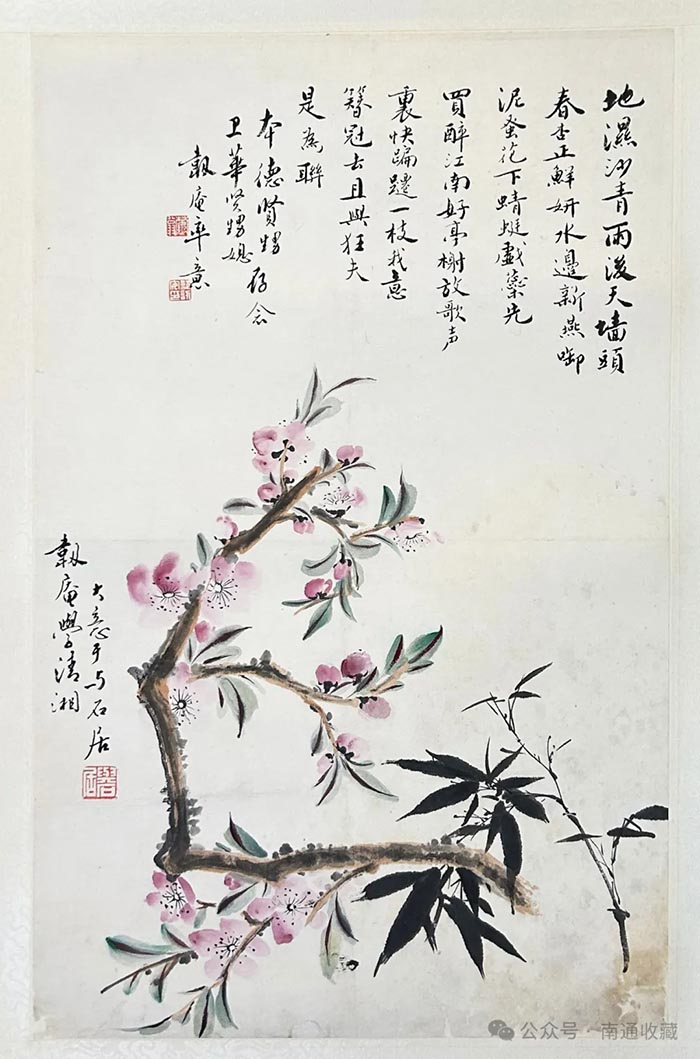 地濕沙青雨後天墻頭
春杏正鮮妍水邊新燕啣
泥蚤花下蜻蜓戲蘂先
買醉江南好亭榭放歌声
裏快蹁躚一枝我意
簪冠去且與狂夫
是為聯
本德賢甥存念
卫華賢甥媳
韌庵率意
韌庵學清湘
大意于与石居
公众号·南通收藏